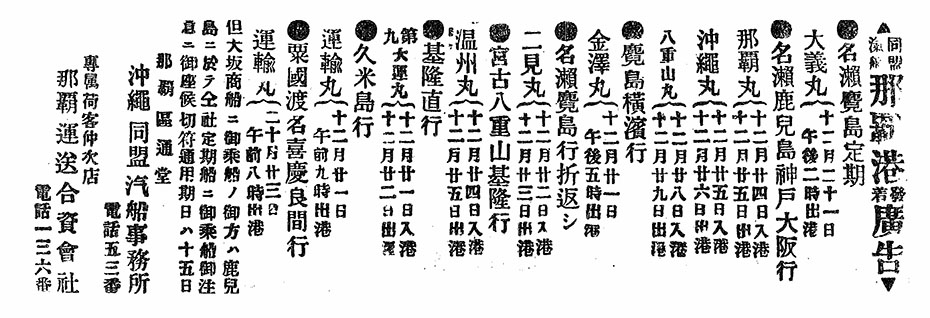 ▲同盟滊船那覇港發着廣告▼
●名瀨鹿島定期
大義丸{十二月二十一日
午後二時出港
●名瀨鹿兒島神戶大阪行
那覇丸{十二月廿四日入港
十二月廿五日出港
沖繩丸{十二月廿五日入港
十二月廿六日出港
八重山丸{十二月廿八日入港
十二月廿九日出港
●鹿島橫濱行
金澤丸{十二月廿一日
午後五時出港
●名瀨鹿島行折返シ
二見丸{十二月廿二日入港
十二月廿三日出港
●宮古八重山基隆行
温州丸{十二月廿四日入港
十二月廿五日出港
●基隆直行
第九大運丸{十二月廿一日入港
十二月廿二日出港
●久米島行
運輸丸{十二月廿一日
午前九時出港
●粟國渡名喜慶良間行
運輸丸{十二月廿三日
午前八時出港
但大坂商船ニ御乘船ノ御方ハ鹿兒
島ニ於テ仝社定期船ニ御乘船御注
意ニ御座候切符通用期日ハ十五日
那覇區通堂
沖繩同盟汽船事務所
電話五三番
專属荷客仲次店
那覇運送合資會社
電話一三六番